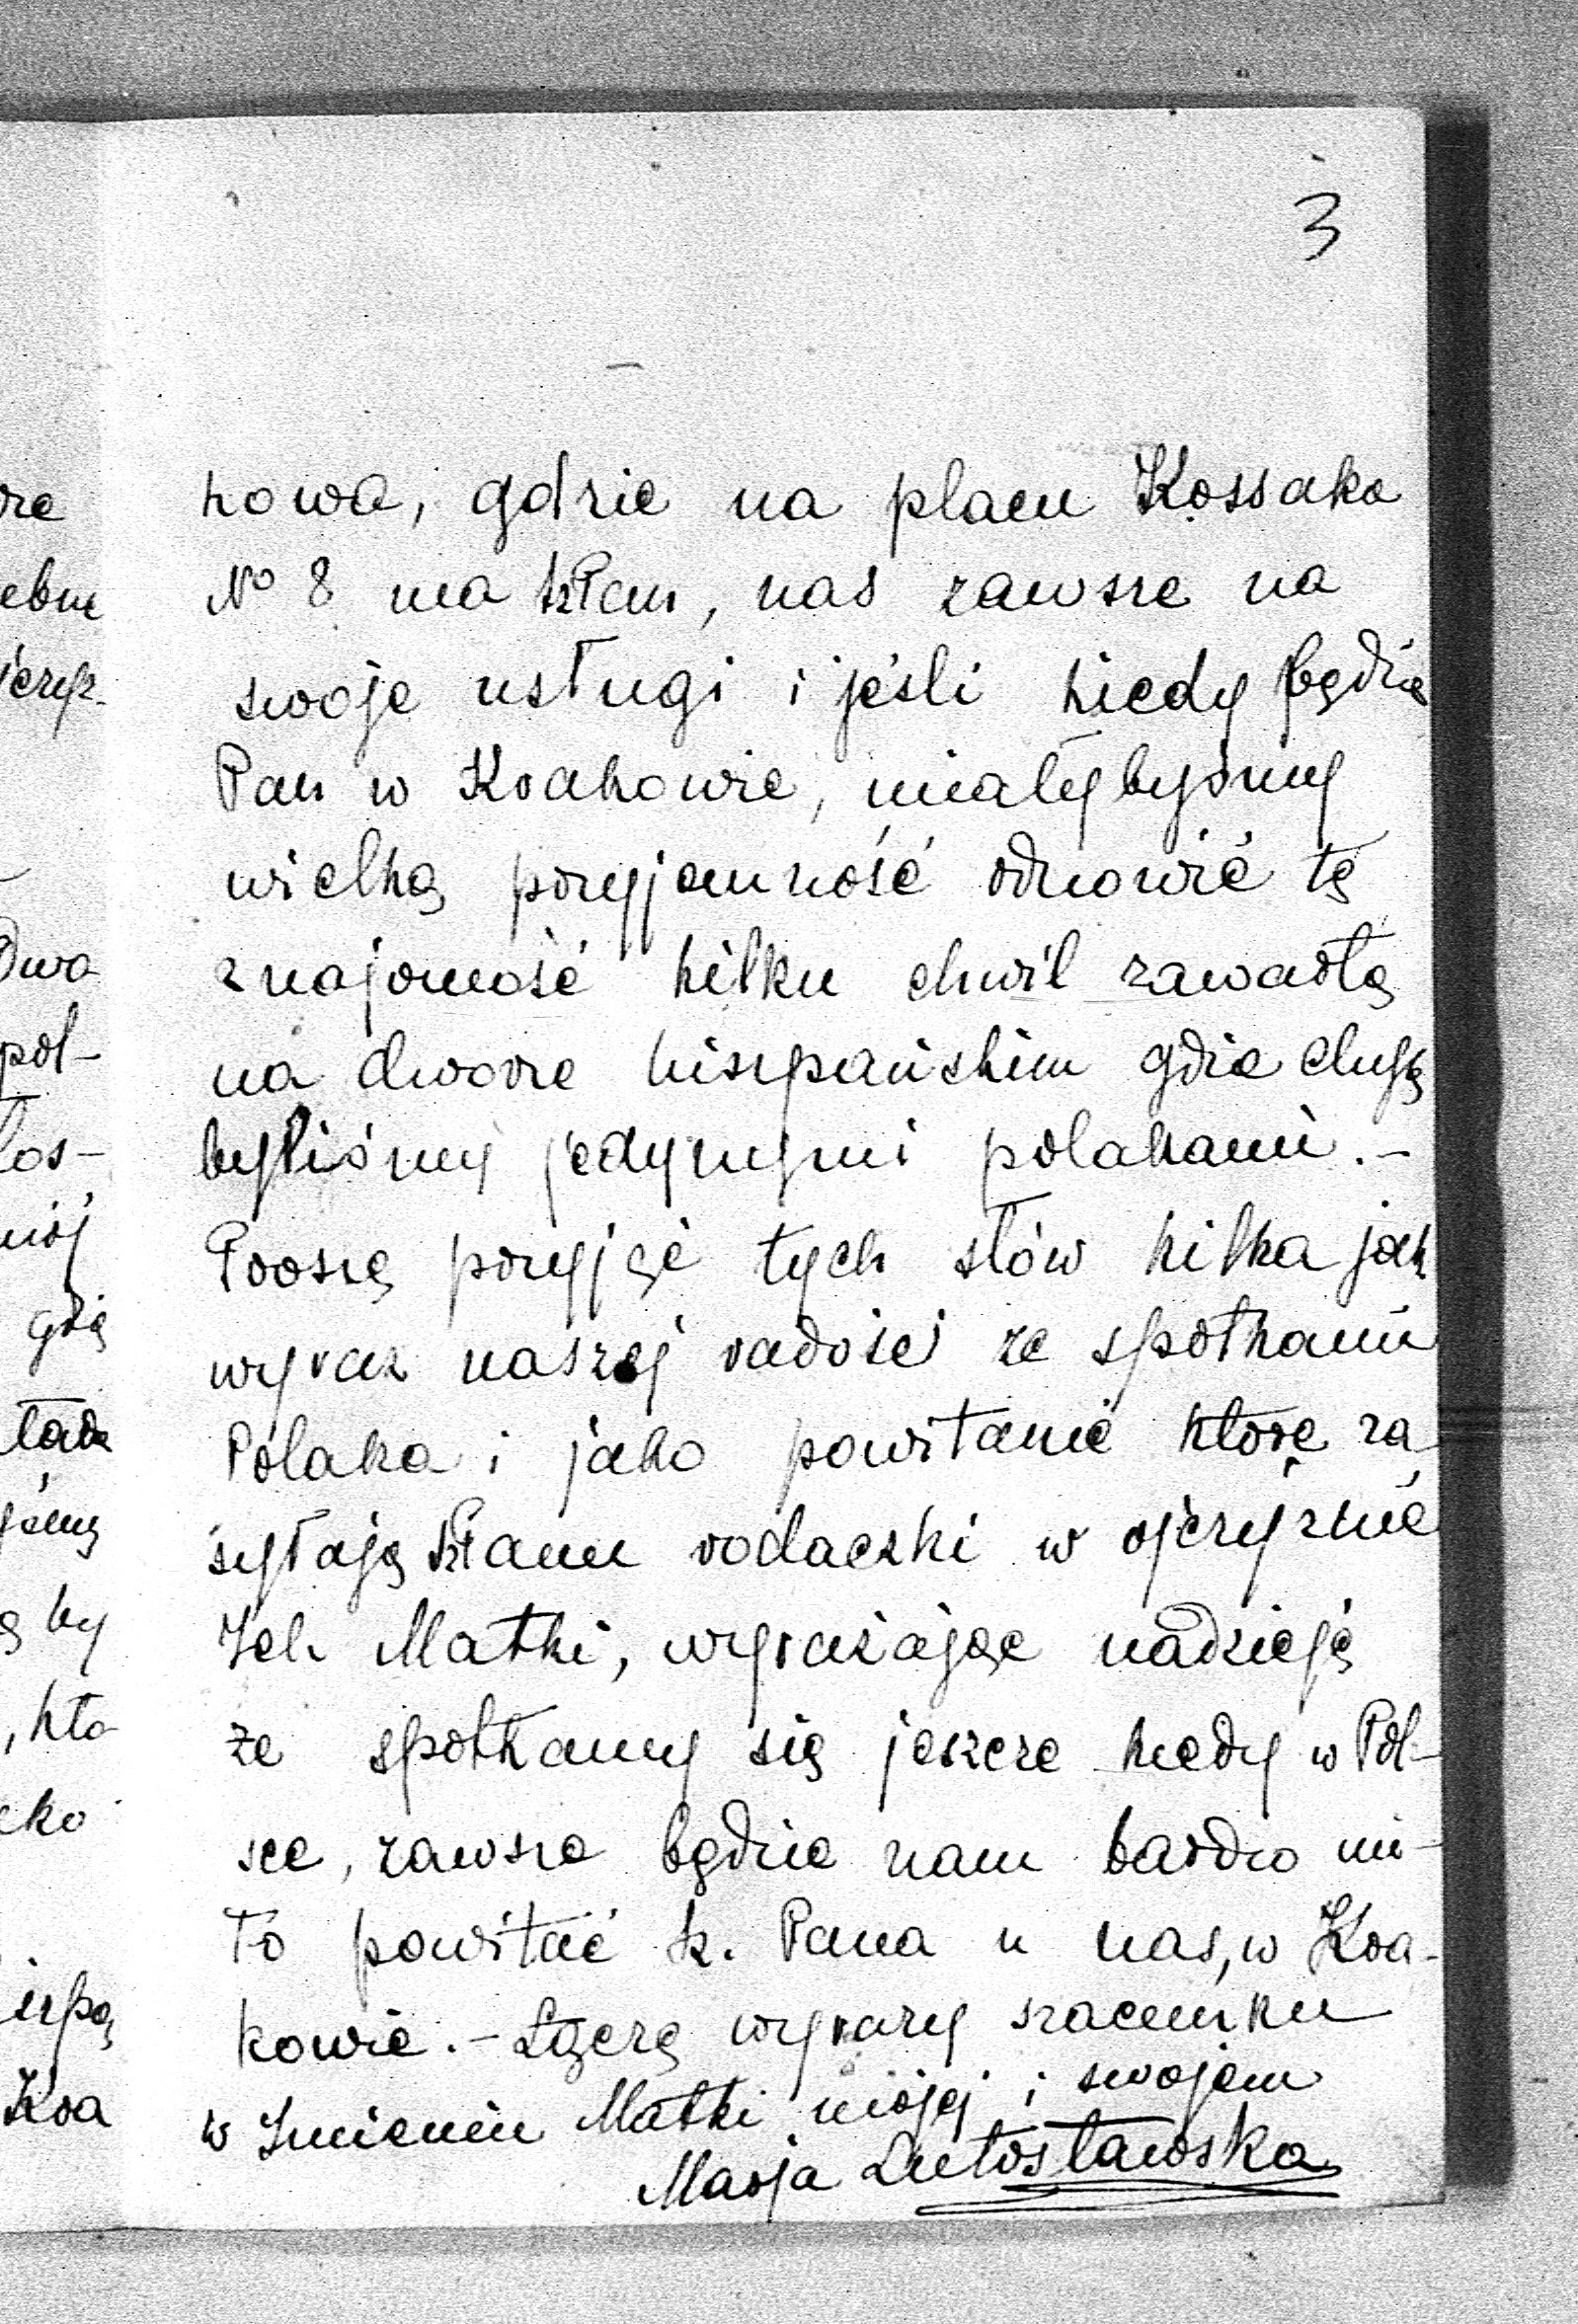 3
kowa, gdzie na placu Kossaka
No 8 ma kś. Pan, nas zawsze na
swoje usługi i jeśli kiedy będzie
Pan w Krakowie, miałybyśmy
wielką przyjemność odnowić tę
znajomość kilku chwil zawartą
na dworze hiszpańskim gdzie
byliśmy jedynymi polakami.-
Proszę przyjąć tych słów kilka jak
wyraz naszej radości ze spotkania
Polaka i jako powitanie które za-
syłają Panu rodaczki w ojczyźnie
Ich Matki, wyrażając nadzieję
że spotkamy się jeszcze kiedy w Pol-
sce, zawsze będzie nam bardzo mi-
ło powitać k. Pana u nas, w Kra-
kowie.- Łączę wyrazy szacunku
w Imieniu Matki mojej i swojem
Marja Lutosławska